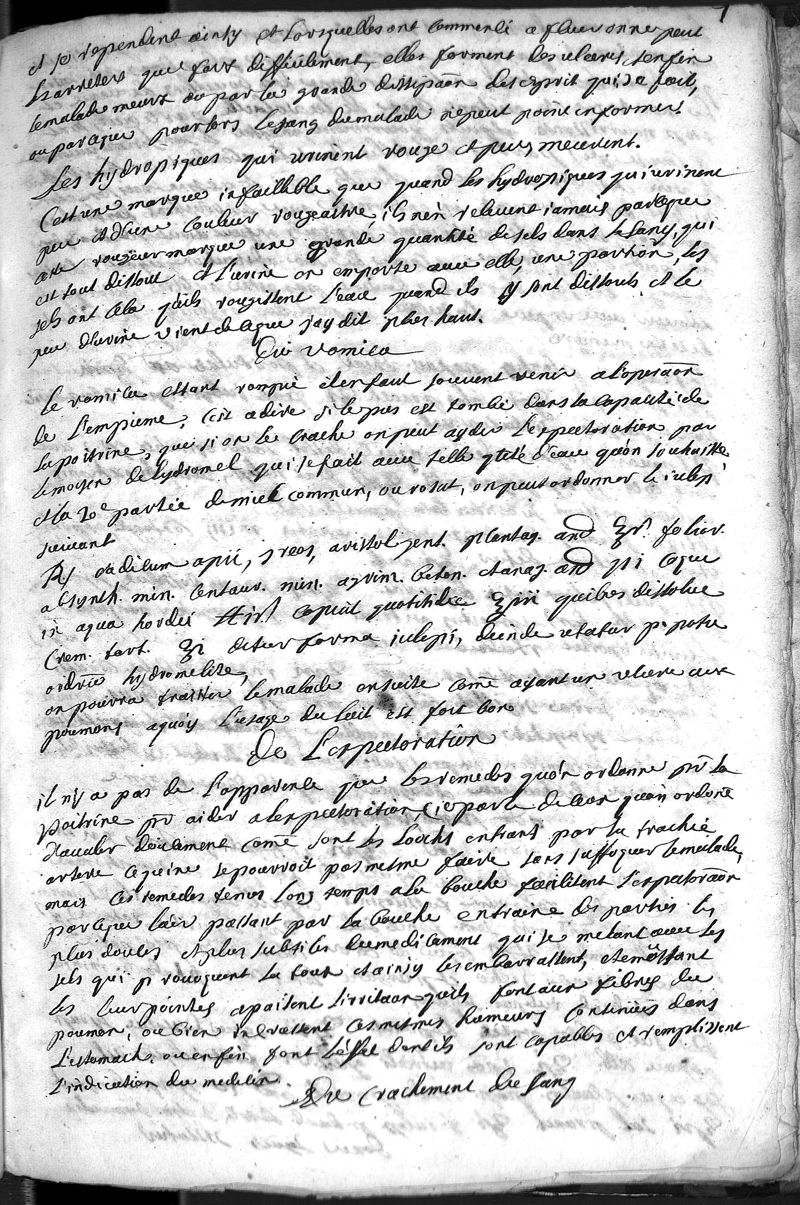 7
et se rependent ainsy et Lorsquelles ont commencé a fluer on ne peut
les arreter que fort difficilement, elles forment des ulceres, Enfin
le malade meurt ou par la grande dissipaôn des esprit qui sa fait,
ou parceque pour lors le sang du malade ne peut point en former.
Les hydropiques qui urinent rouge et peu, meurent.
C'est une marque infaillible que quand les hydropiques qui urinent
peu et d'une couleur rougeastre, ils n'en relevent jamais parceque
cette rougeur marque une grande quantité de sels dans le sang, qui
est tout dissout et l'urine en emporte avec elle, une portion, les
sels ont cela qu'ils rougissent l'eau quand ils y sont dissouts et le
peu d'urine vient de ce que j'ay dit plus haut.
Du vomica
Le vomica estant rompu il en faut souvent venir a l'operaôn
de L'empieme, c'est a dire si le pus est tombé dans la capacité de
la poitrine, que si on le crache on peut ayder L'expectoration par
le moyen de lydromel qui se fait avec telle qtité d'eau qu'on souhaitte
et la 20e partie de miel commun, ou rosat, on peut ordonner le julep
suivant
R/ radicum apii, 5 rees, aristol. gent. plantag. and ʒvi. folior.
absynth. min. centaur. min. agrim. beton. et anag. and pi coque
in aqua hordei capiat quotidie ʒiii quibus dissolue
Crem. tart. ʒi detur forma julepi, deinde utatur p. potu
ordrio hydromelite,
on pourra traitter le malade en suite come ayant un ulcere aux
poumons aquoy L'usage du lait est fort bon
De L'expectoratiôn
il n'y a pas de l'apparence que les remedes qu'on ordonne pr la
poitrine pr aider a l'expectoration, (ie parle de ceux qu'on ordone
d'avaler doucement come sont les Loochs entrant par la trachée
artere ce qui ne se pourroit pas mesme faire sans suffoquer le malade,
mais ces remedes tenus long temps a la bouche facilitent L'expectoraôn
parceque l'air passant par la bouche entraine des parties les
plus douces et plus subtiles du medicament qui se melant avec les
sels qui provoquent la toux et ainsy les embarrassent, et emoussant
les leurs pointes apaisent l'irritaôn qu'ils font aux fibres du
poumon, ou bien incrassent ces mesmes humeurs continües dans
L'estomach, ou enfin font l'effet dont ils sont capables et remplissent
l'indication du medecin.
Du Crachement de sang